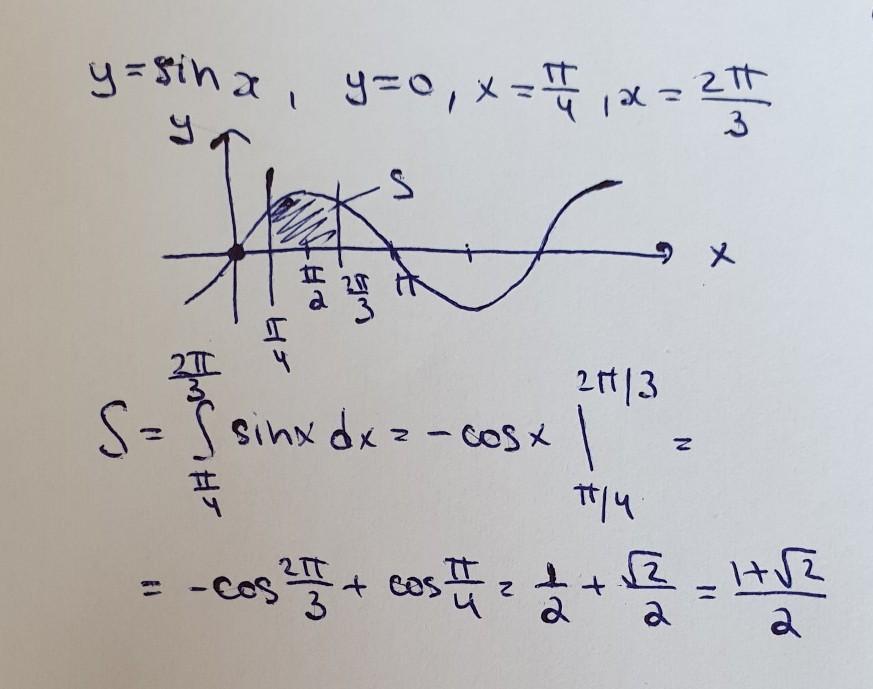 y=sinx, y=0, x=π/4, x=2π/3
y
S
x
π/2 2π/3 π
π/4
S= ∫_{π/4}^{2π/3} sinx dx = -cosx |_{π/4}^{2π/3} =
= -cos 2π/3 + cos π/4 = 1/2 + √2/2 = (1+√2)/2